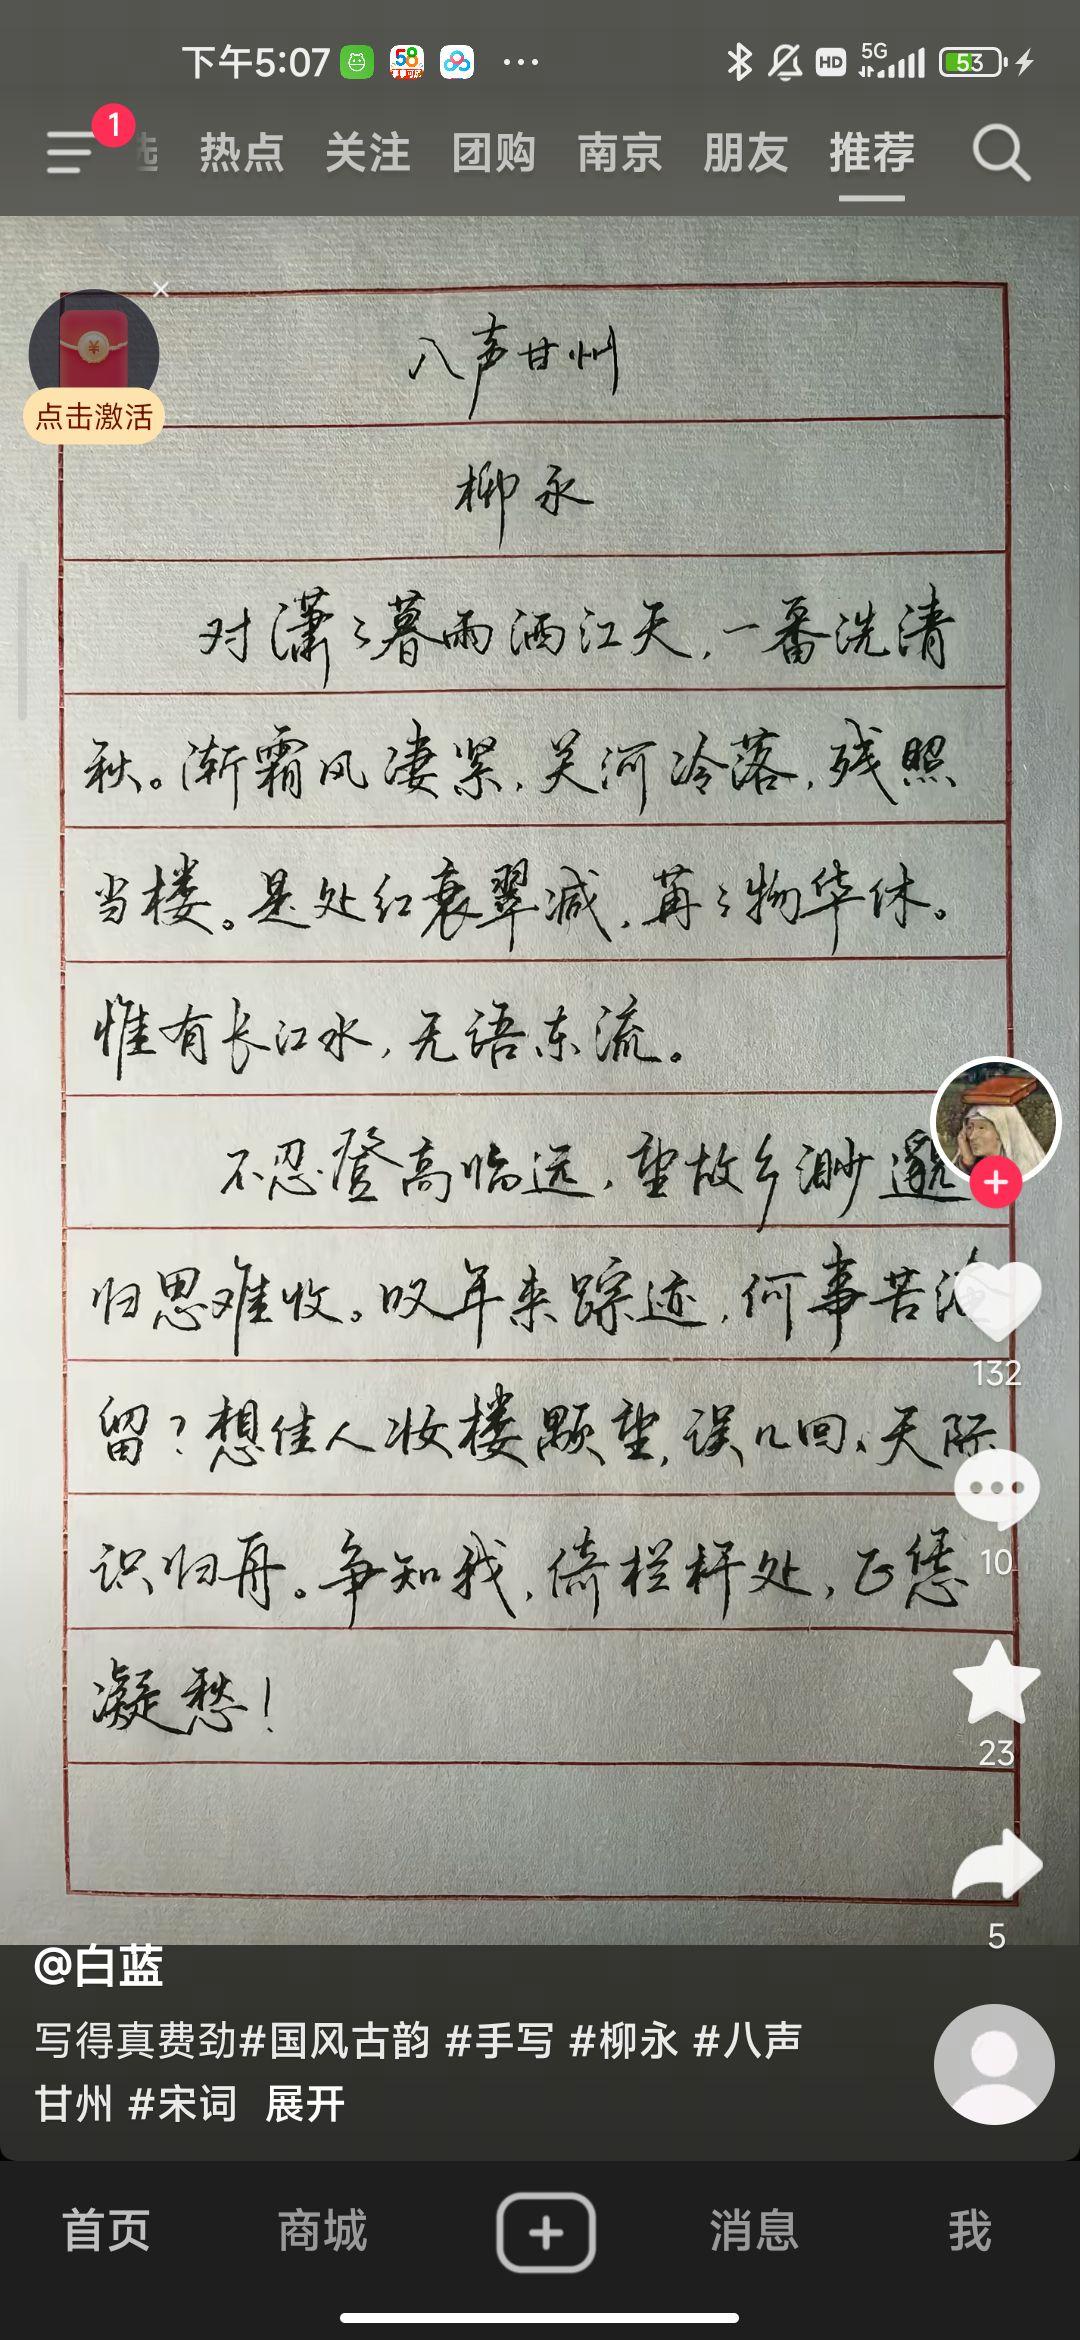 下午5:07 58 ... HD 5G 53
1 选 热点 关注 团购 南京 朋友 推荐
点击激活
八声甘州
柳永
对潇々暮雨洒江天,一番洗清
秋。渐霜风凄紧,关河冷落,残照
当楼。是处红衰翠减,苒々物华休。
惟有长江水,无语东流。
不忍登高临远,望故乡渺邈
归思难收。叹年来踪迹,何事苦淹
留?想佳人妆楼颙望,误几回、天际
识归舟。争知我,倚栏杆处,正恁
凝愁!
132
10
23
5
@白蓝
写得真费劲#国风古韵 #手写 #柳永 #八声
甘州 #宋词 展开
首页 商城 消息 我